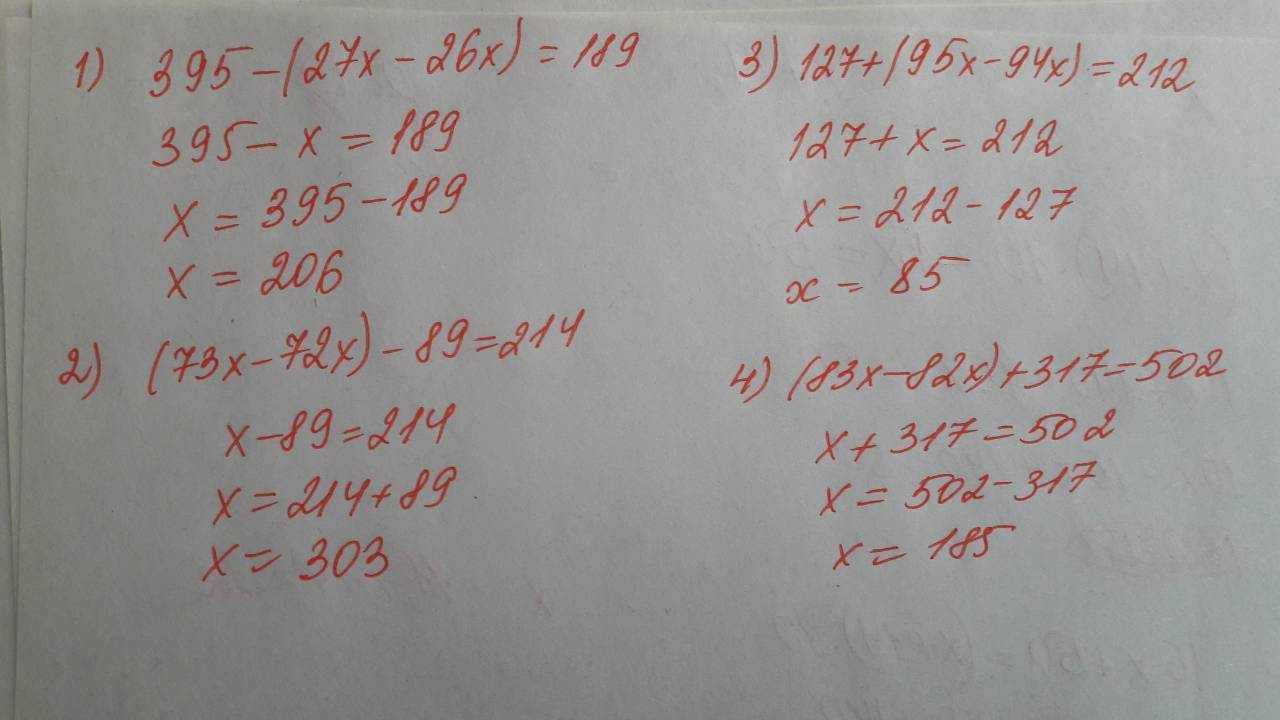 1) 395-(27x-26x)=189
395-x=189
x=395-189
x=206
2) (73x-72x)-89=214
x-89=214
x=214+89
x=303
3) 127+(95x-94x)=212
127+x=212
x=212-127
x=85
4) (83x-82x)+317=502
x+317=502
x=502-317
x=185